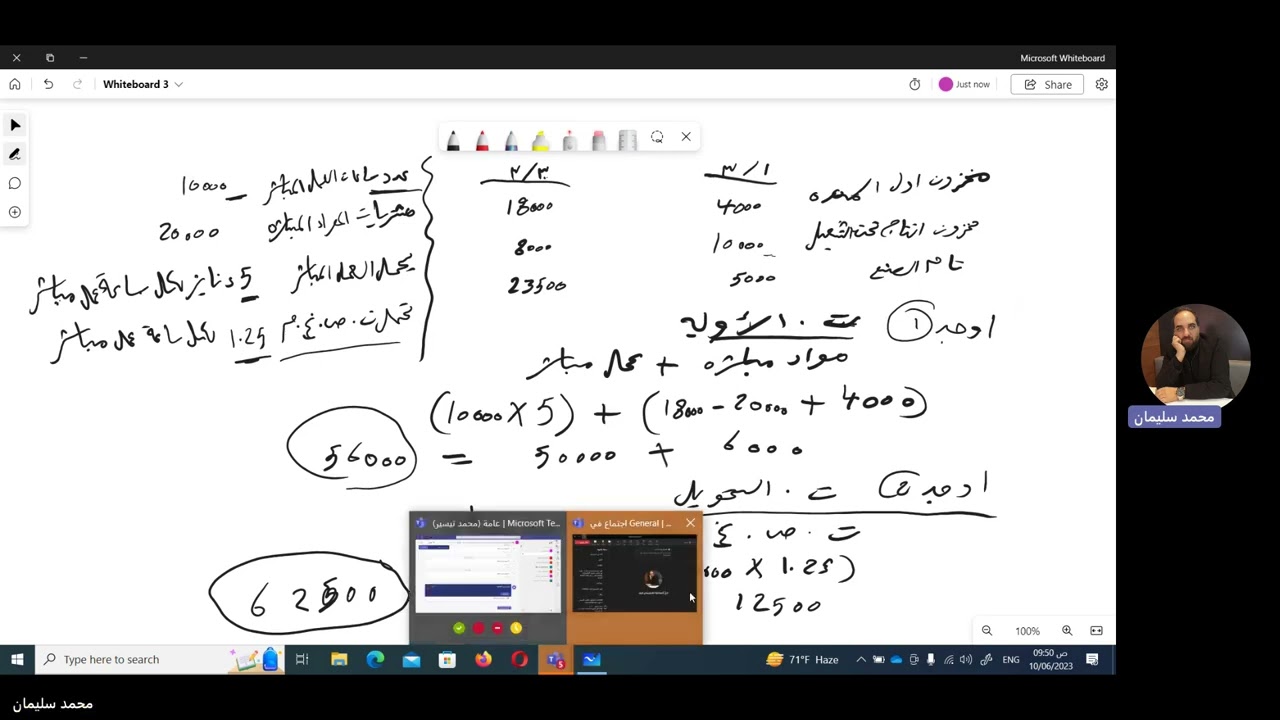 Microsoft Whiteboard
Whiteboard 3
Just now
Share
٣/١
٣/٣٠
مخزون اول المده
4000
18000
مخزون انتاج تحت التشغيل
10000
8000
تام الصنع
5000
23500
عدد ساعات العمل المباشر 10000
مشتريات المواد المباشره 20000
العمل المباشر 5 دنانير لكل ساعة عمل مباشر
ت.ص.غ.م 1.25 لكل ساعة عمل مباشر
اوجد ① ت. الأولية
مواد مباشره + عمل مباشر
(10000 X 5) + (18000 - 20000 + 4000)
56000 = 50000 + 6000
اوجد ② ت. التحويل
ت. ص. غ
000 X 1.25)
12500
62500
عامة (محمد تيسير) | Microsoft Te...
اجتماع في General | ...
100%
محمد سليمان
Type here to search
71°F Haze
ENG
09:50 ص
10/06/2023
محمد سليمان